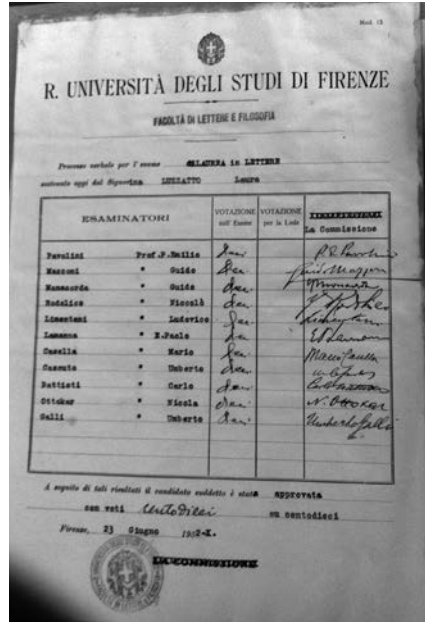 Mod. 13
R. UNIVERSITÀ DEGLI STUDI DI FIRENZE
FACOLTÀ DI LETTERE E FILOSOFIA
Processo verbale per l'esame di LAUREA in LETTERE
sostenuto oggi dal Signorina LUZZATTO Laura
ESAMINATORI VOTAZIONE sull'Esame VOTAZIONE per la Lode La Commissione
Pavolini Prof. P. Emilio dieci
Mazzoni " Guido dieci Guido Mazzoni
Manacorda " Guido dieci
Rodolico " Niccolò dieci
Limentani " Ludovico dieci Limentani
Lamanna " E. Paolo dieci
Casella " Mario dieci Mario Casella
Cassuto " Umberto dieci
Battisti " Carlo dieci
Ottokar " Nicola dieci N. Ottokar
Galli " Umberto dieci Umberto Galli
A seguito di tali risultati il candidato suddetto è stata approvata
con voti centodieci su centodieci
Firenze, 23 Giugno 1932-X.
LA COMMISSIONE